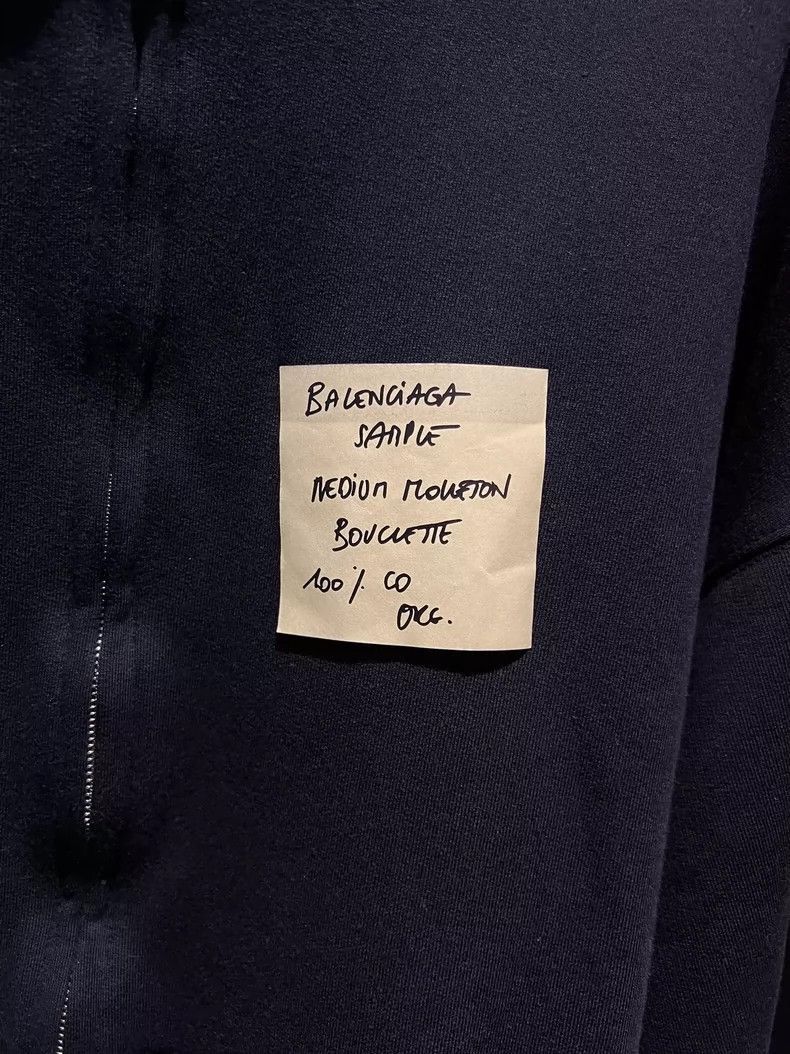 BALENCiAGA
SAMPLE
MEDiUM MOLLETON
BOUCLETTE
100% CO
ORG.